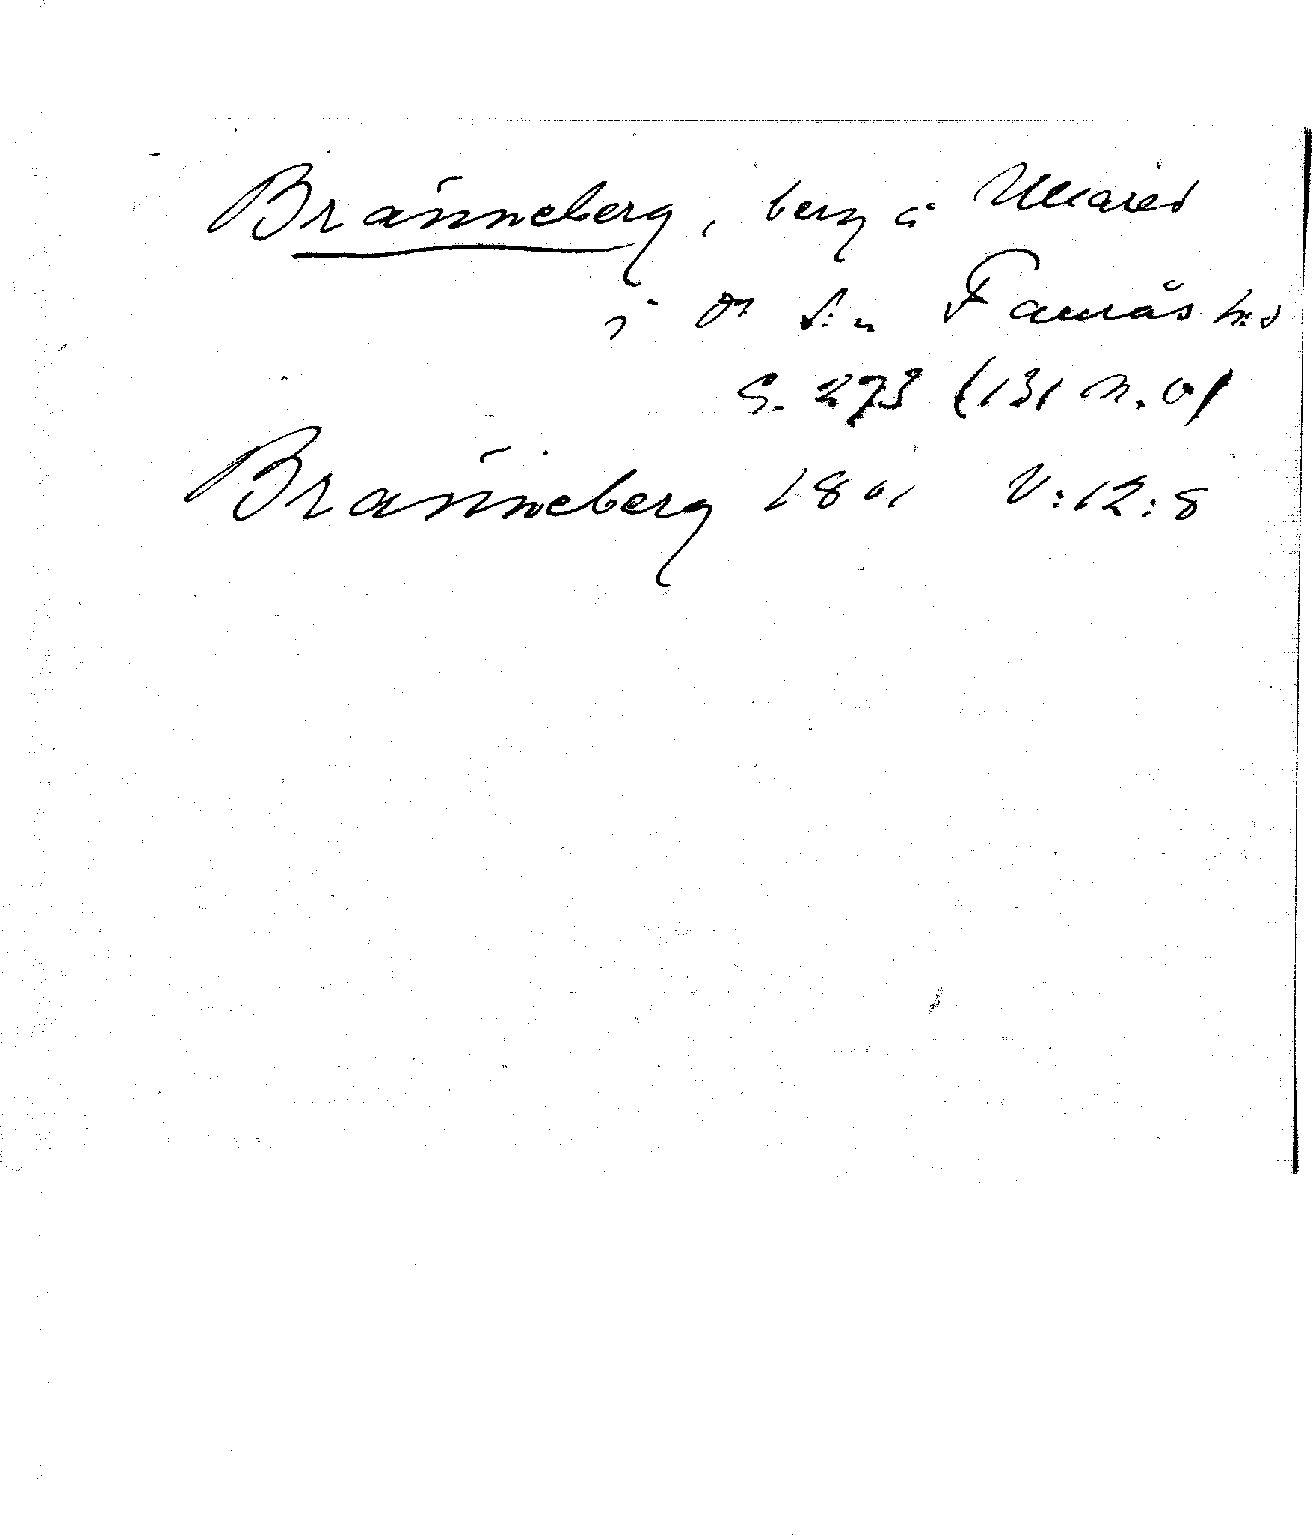 Bränneberg, berg å Ullared
i Famnäs hd
S. 273 (131 n. o)
Bränneberg 1801 V:12:8